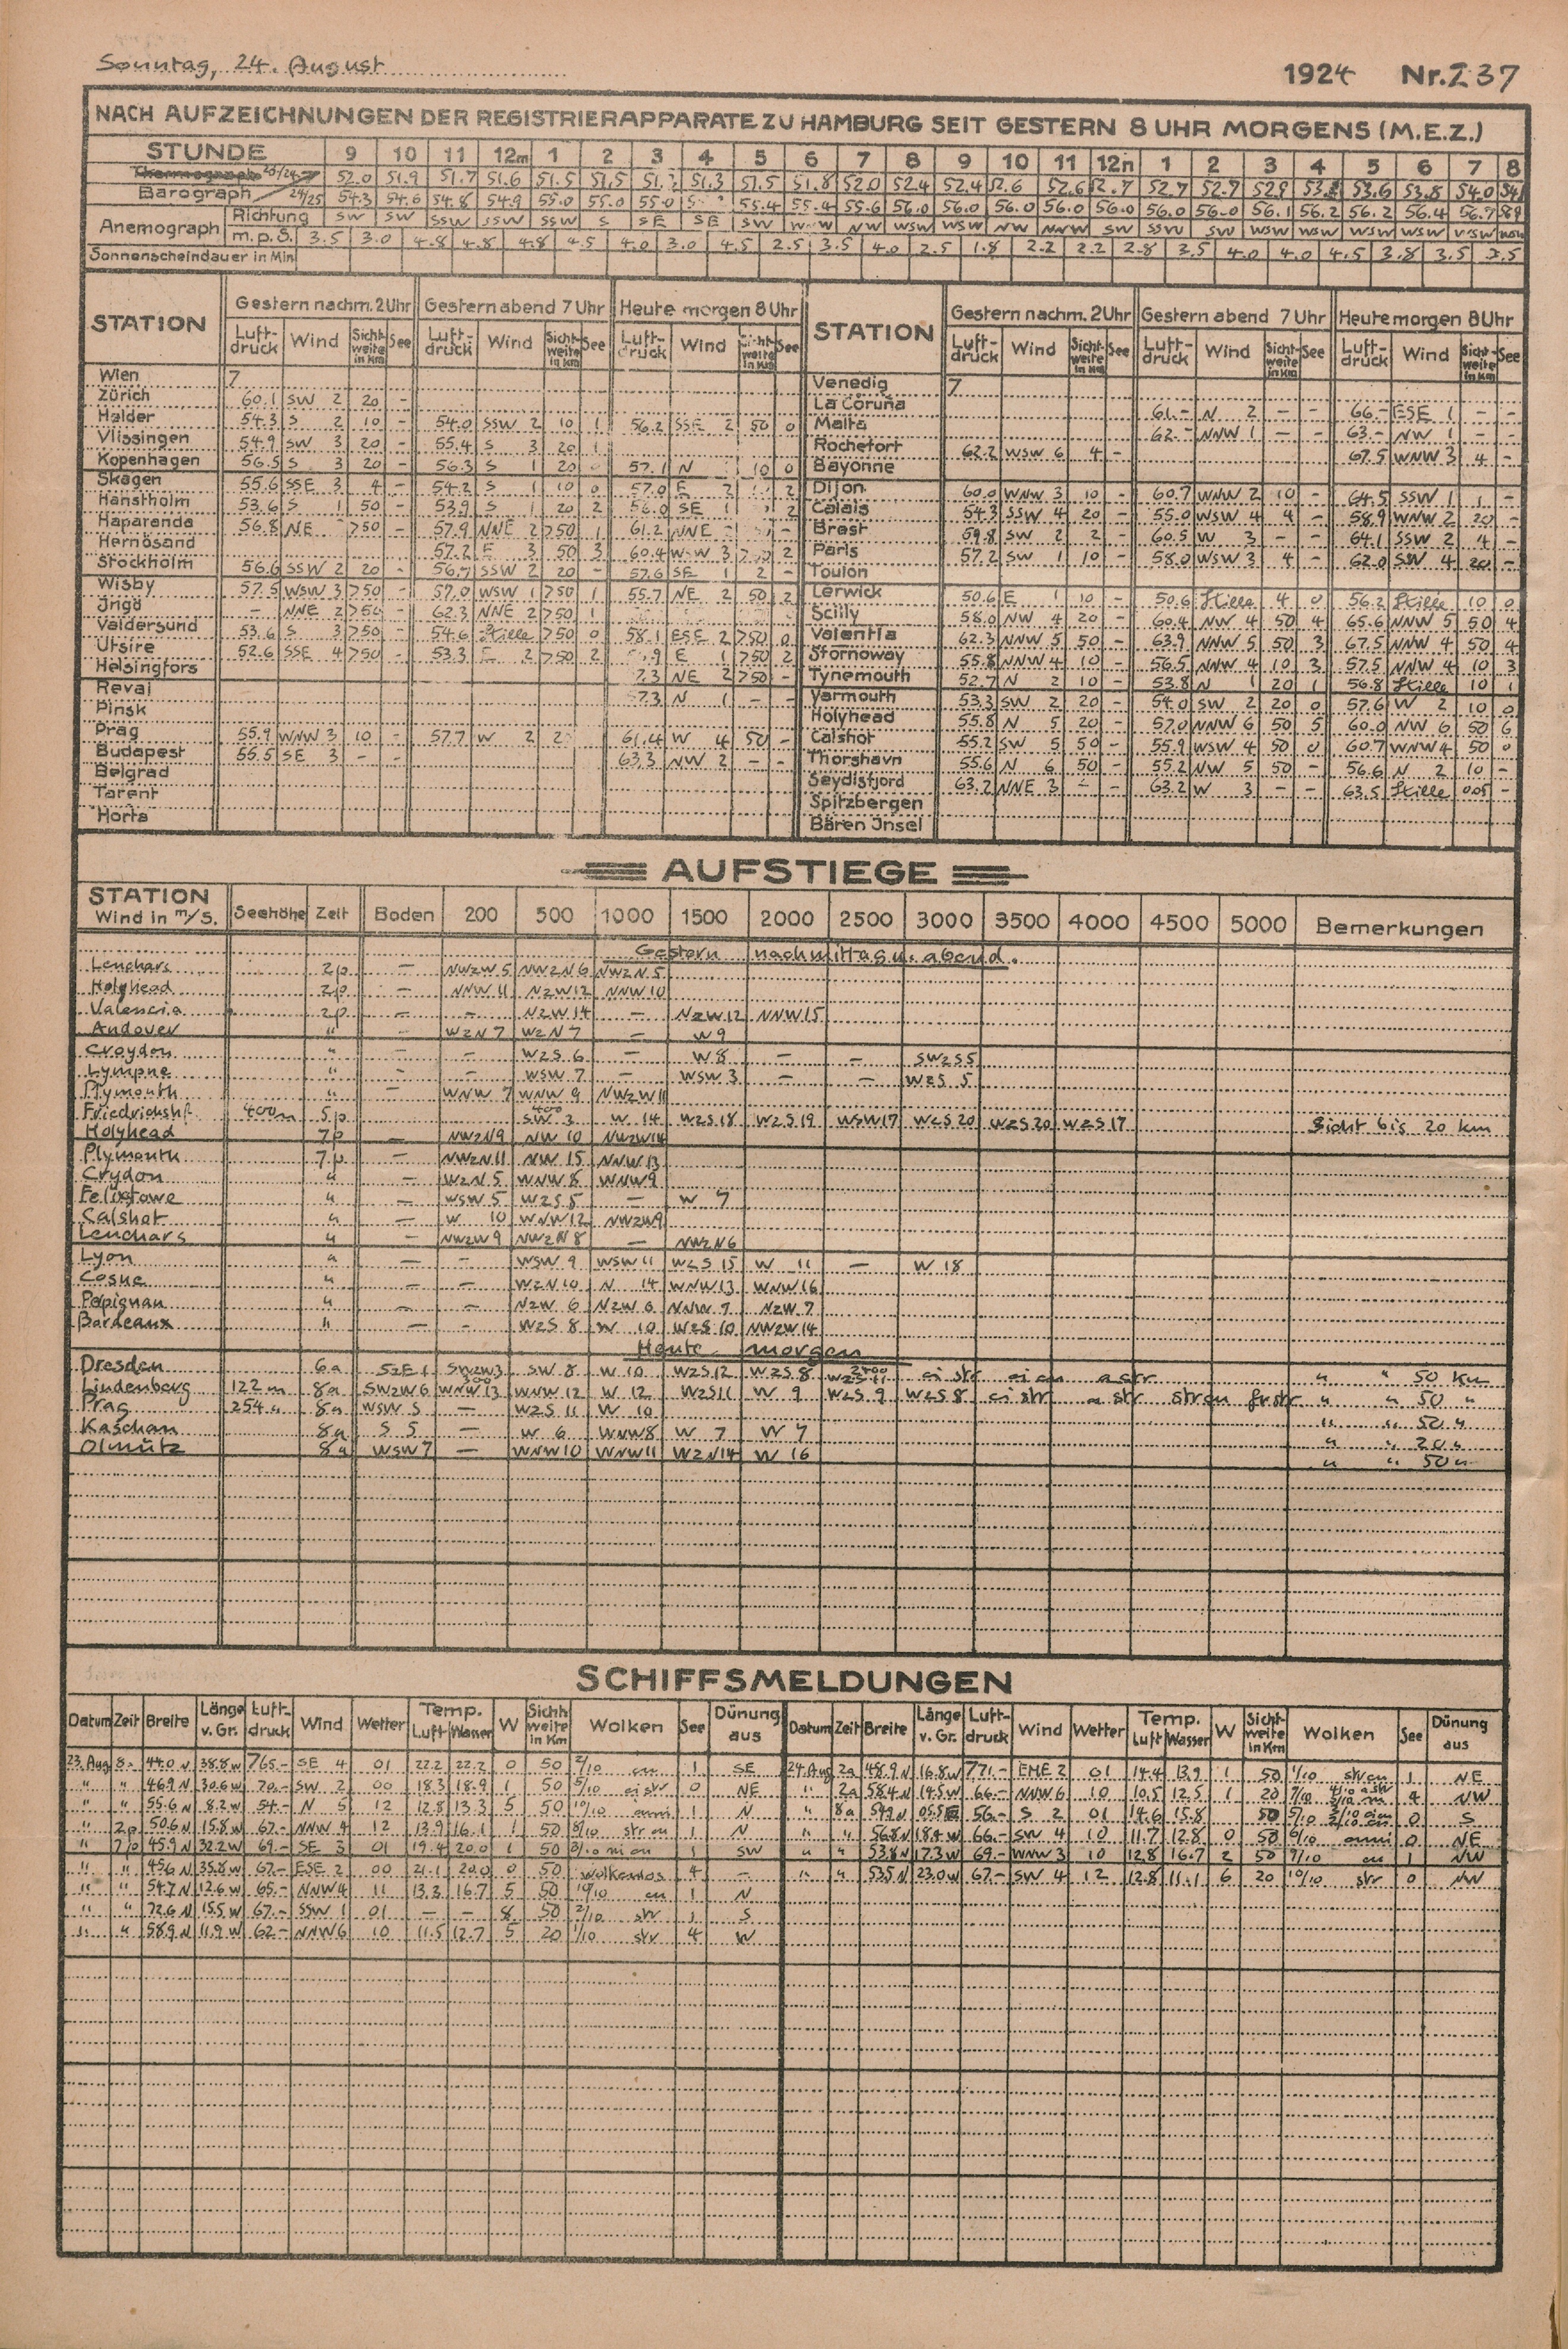 Sonntag, 24. August 1924 Nr. 237
NACH AUFZEICHNUNGEN DER REGISTRIERAPPARATE ZU HAMBURG SEIT GESTERN 8 UHR MORGENS (M.E.Z.)
STUNDE 9 10 11 12m 1 2 3 4 5 6 7 8 9 10 11 12n 1 2 3 4 5 6 7 8
Thermograph 23/24 52.0 51.9 51.7 51.6 51.5 51.5 51.3 51.5 51.8 52.0 52.4 52.4 52.6 52.6 52.7 52.7 52.9 52.9 53.6 53.8 54.0
Barograph 24/25 54.3 54.6 54.8 54.9 55.0 55.0 55.0 55.4 55.4 55.6 56.0 56.0 56.0 56.0 56.0 56.0 56.0 56.1 56.2 56.2 56.4 56.7
Anemograph Richtung SW SW SSW SSW SSW S SE SE SW WNW NW WSW WSW NW NNW SW SSW SW WSW WSW WSW WSW WSW WSW
m.p.S. 3.5 3.0 4.8 4.8 4.8 4.5 4.0 3.0 4.5 2.5 3.5 4.0 2.5 1.8 2.2 2.2 2.8 3.5 4.0 4.0 4.5 3.8 3.5 3.5
Sonnenscheindauer in Min
STATION Gestern nachm. 2 Uhr Gestern abend 7 Uhr Heute morgen 8 Uhr STATION Gestern nachm. 2 Uhr Gestern abend 7 Uhr Heute morgen 8 Uhr
Luft-druck Wind Sicht-weite in km See Luft-druck Wind Sicht-weite in km See Luft-druck Wind Sicht-weite in km See Luft-druck Wind Sicht-weite in km See Luft-druck Wind Sicht-weite in km See Luft-druck Wind Sicht-weite in km See
Wien 7
Zürich 60.1 SW 2 20 -
Helder 54.3 S 2 10 - 54.0 SSW 2 10 1 56.2 SSE 2 50 0
Vlissingen 54.9 SW 3 20 - 55.4 S 3 20 1
Kopenhagen 56.5 S 3 20 - 56.3 S 1 20 57.1 N 10 0
Skagen 55.6 SSE 3 4 - 54.2 S 1 10 0 57.0 E 2 2
Hanstholm 53.6 S 1 50 - 53.9 S 1 20 2 56.0 SE 1 2
Haparanda 56.8 NE >50 - 57.9 NNE 2 >50 1 61.2 NNE
Hernösand 57.2 E 3 50 3 60.4 WSW 3 2
Stockholm 56.6 SSW 2 20 - 56.7 SSW 2 20 - 57.6 SE 1 2 -
Wisby 57.5 WSW 3 >50 - 57.0 WSW 1 >50 1 55.7 NE 2 50 2
Ingö - NNE 2 >50 - 62.3 NNE 2 >50 1
Valdersund 53.6 S 3 >50 - 54.6 Stille >50 0 58.1 ESE 2 >50 0
Utsire 52.6 SSE 4 >50 - 53.3 E 2 >50 2 E 1 >50 2
Helsingfors NE 2 >50 -
Reval 57.3 N 1 - -
Pinsk
Prag 55.9 WNW 3 10 - 57.7 W 2 61.4 W 4 50 -
Budapest 55.5 SE 3 - - 63.3 NW 2 - -
Belgrad
Tarent
Horta
Venedig 7
La Coruña 61.- N 2 - - 66.- ESE 1 - -
Malta 62.- NNW 1 - - 63.- NW 1 - -
Rochefort 62.2 WSW 6 4 - 67.5 WNW 3 4 -
Bayonne
Dijon 60.0 WNW 3 10 - 60.7 WNW 2 10 - 64.5 SSW 1 1 -
Calais 54.3 SSW 4 20 - 55.0 WSW 4 4 - 58.9 WNW 2 20 -
Brest 59.8 SW 2 2 - 60.5 W 3 - - 64.1 SSW 2 4 -
Paris 57.2 SW 1 10 - 58.0 WSW 3 4 - 62.0 SW 4 20 -
Toulon
Lerwick 50.6 E 1 10 - 50.6 Stille 4 0 56.2 Stille 10 0
Scilly 58.0 NW 4 20 - 60.4 NW 4 50 4 65.6 NNW 5 50 4
Valentia 62.3 NNW 5 50 - 63.9 NNW 5 50 3 67.5 NNW 4 50 4
Stornoway 55.8 NNW 4 10 - 56.5 NNW 4 10 3 57.5 NNW 4 10 3
Tynemouth 52.7 N 2 10 - 53.8 N 1 20 1 56.8 Stille 10 1
Yarmouth 53.3 SW 2 20 - 54.0 SW 2 20 0 57.6 W 2 10 0
Holyhead 55.8 N 5 20 - 57.0 NNW 6 50 5 60.0 NW 6 50 6
Calshot 55.2 SW 5 50 - 55.9 WSW 4 50 0 60.7 WNW 4 50 0
Thorshavn 55.6 N 6 50 - 55.2 NW 5 50 - 56.6 N 2 10 -
Seydisfjord 63.2 NNE 3 - - 63.2 W 3 - - 63.5 Stille 0.05 -
Spitzbergen
Bären Insel
AUFSTIEGE
STATION Wind in m/s. Seehöhe Zeit Boden 200 500 1000 1500 2000 2500 3000 3500 4000 4500 5000 Bemerkungen
Gestern nachmittag u. abend.
Leuchars 2p - NWzW 5 NWzN 6 NWzN 5
Holyhead 2p - NNW 11 NzW 12 NNW 10
Valencia 2p - - NzW 14 - NzW 12 NNW 15
Andover " - WzN 7 WzN 7 - W 9
Croydon " - - WzS 6 - W 8 - - SWzS 5
Lympne " - - WSW 7 - WSW 3 - - WzS 5
Plymouth " - WNW 7 WNW 9 NWzW 11
Friedrichshf. 400m 5p 400 SW 3 W 14 WzS 18 WzS 19 WSW 17 WzS 20 WzS 20 WzS 17 Sicht bis 20 km
Holyhead 7p - NWzN 9 NW 10 NWzW 14
Plymouth 7p - NWzN 11 NW 15 NNW 13
Crydon " - WzN 5 WNW 8 WNW 9
Felixtowe " - WSW 5 WzS 8 - W 7
Calshot " - W 10 WNW 12 NWzW 9
Leuchars " - NWzW 9 NWzN 8 - NWzN 6
Lyon " - - WSW 9 WSW 11 WzS 15 W 11 - W 18
Cosne " - - WzN 10 N 14 WNW 13 WNW 16
Pepignan " - - NzW 6 NzW 6 NNW 7 NzW 7
Bordeaux " - - WzS 8 W 10 WzS 10 NWzW 14
Heute morgen
Dresden 6a SzE 1 SWzW 3 SW 8 W 10 WzS 12 WzS 8 2400 WzS 11 ci str ci cu a str " " 50 km
Lindenberg 122 m 8a SWzW 6 300 WNW 13 WNW 12 W 12 WzS 11 W 9 WzS 9 WzS 8 ci str a str str cu fr str " " 50 "
Prag 254 " 8a WSW 5 - WzS 11 W 10 " " 50 "
Kaschau 8a S 5 - W 6 WNW 8 W 7 W 7 " " 20 "
Olmütz 8a WSW 7 - WNW 10 WNW 11 WzN 14 W 16 " " 50 "
SCHIFFSMELDUNGEN
Datum Zeit Breite Länge v. Gr. Luft-druck Wind Wetter Temp. Luft Wasser W Sicht-weite in Km Wolken See Dünung aus Datum Zeit Breite Länge v. Gr. Luft-druck Wind Wetter Temp. Luft Wasser W Sicht-weite in Km Wolken See Dünung aus
23. Aug 8a 44.0 N 38.8 W 765.- SE 4 01 22.2 22.2 0 50 2/10 cu 1 SE 24. Aug 2a 48.9 N 16.8 W 771.- ENE 2 01 14.4 13.9 1 50 1/10 str cu 1 NE
" " 46.9 N 30.6 W 70.- SW 2 00 18.3 18.9 1 50 5/10 ci str 0 NE " 2a 58.4 N 14.5 W 66.- NNW 6 10 10.5 12.5 1 20 4 NW
" " 55.6 N 8.2 W 54.- N 5 12 12.8 13.3 5 50 10/10 cuni 1 N " 8a 54.9 N 05.5 E 56.- S 2 01 14.6 15.8 50 0 S
" 2p 50.6 N 15.8 W 67.- NNW 4 12 13.9 16.1 1 50 8/10 str cu 1 N " " 56.8 N 18.4 W 66.- SW 4 10 11.7 12.8 0 50 cuni 0 NE
" 7p 45.9 N 32.2 W 69.- SE 3 01 19.4 20.0 1 50 ni cu 1 SW " " 53.8 N 17.3 W 69.- WNW 3 10 12.8 16.7 2 50 9/10 cu 1 NW
" " 45.6 N 35.8 W 67.- ESE 2 00 21.1 20.0 0 50 wolkenlos 4 - " " 53.5 N 23.0 W 67.- SW 4 12 12.8 11.1 6 20 10/10 str 0 NW
" " 54.7 N 12.6 W 65.- NNW 4 11 13.3 16.7 5 50 10/10 cu 1 N
" " 72.6 N 15.5 W 67.- SSW 1 01 - - 8 50 2/10 str 1 S
" " 58.9 N 11.9 W 62.- NNW 6 10 11.5 12.7 5 20 str 4 W